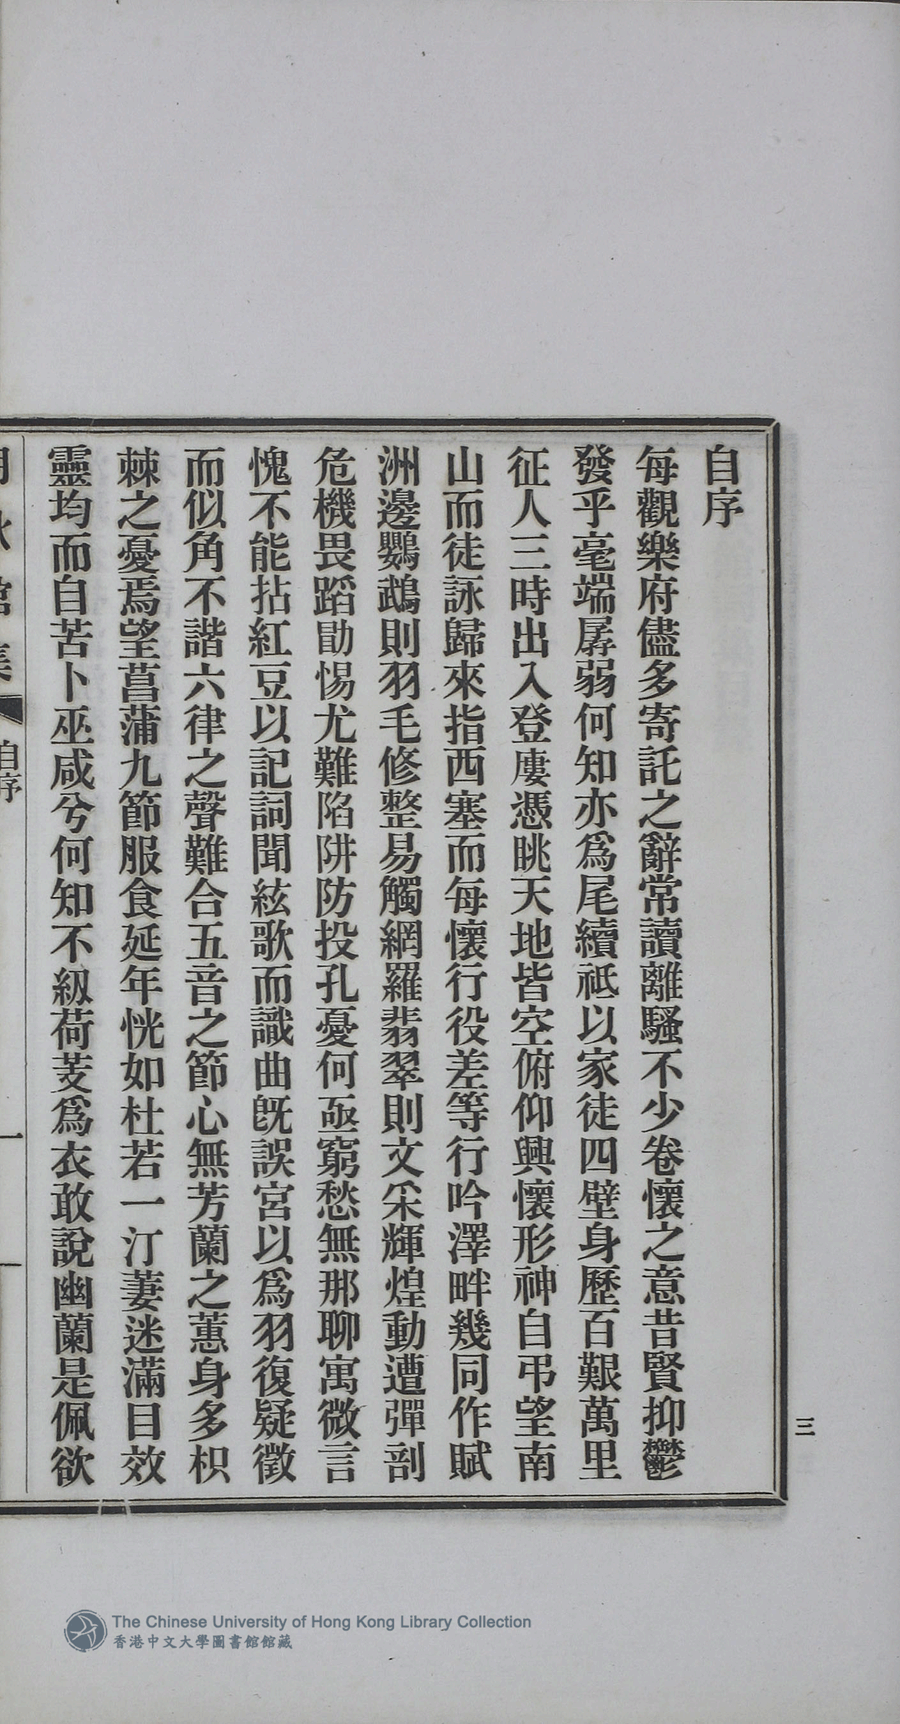 自序
每觀樂府儘多寄託之辭常讀離騷不少卷懷之意昔賢抑鬱
發乎毫端孱弱何知亦爲尾續祇以家徒四壁身歷百艱萬里
征人三時出入登廔憑眺天地皆空俯仰興懷形神自弔望南
山而徒詠歸來指西塞而每懷行役差等行吟澤畔幾同作賦
洲邊鸚鵡則羽毛修整易觸網羅翡翠則文采輝煌動遭彈剖
危機畏蹈勖惕尤難陷阱防投孔憂何亟窮愁無那聊寓微言
愧不能拈紅豆以記詞聞絃歌而識曲旣誤宮以爲羽復疑徵
而似角不諧六律之聲難合五音之節心無芳蘭之蕙身多枳
棘之憂焉望菖蒲九節服食延年恍如杜若一汀萋迷滿目效
靈均而自苦卜巫咸兮何知不紉荷芰爲衣敢說幽蘭是佩欲
自序
一
三
The Chinese University of Hong Kong Library Collection
香港中文大學圖書館館藏